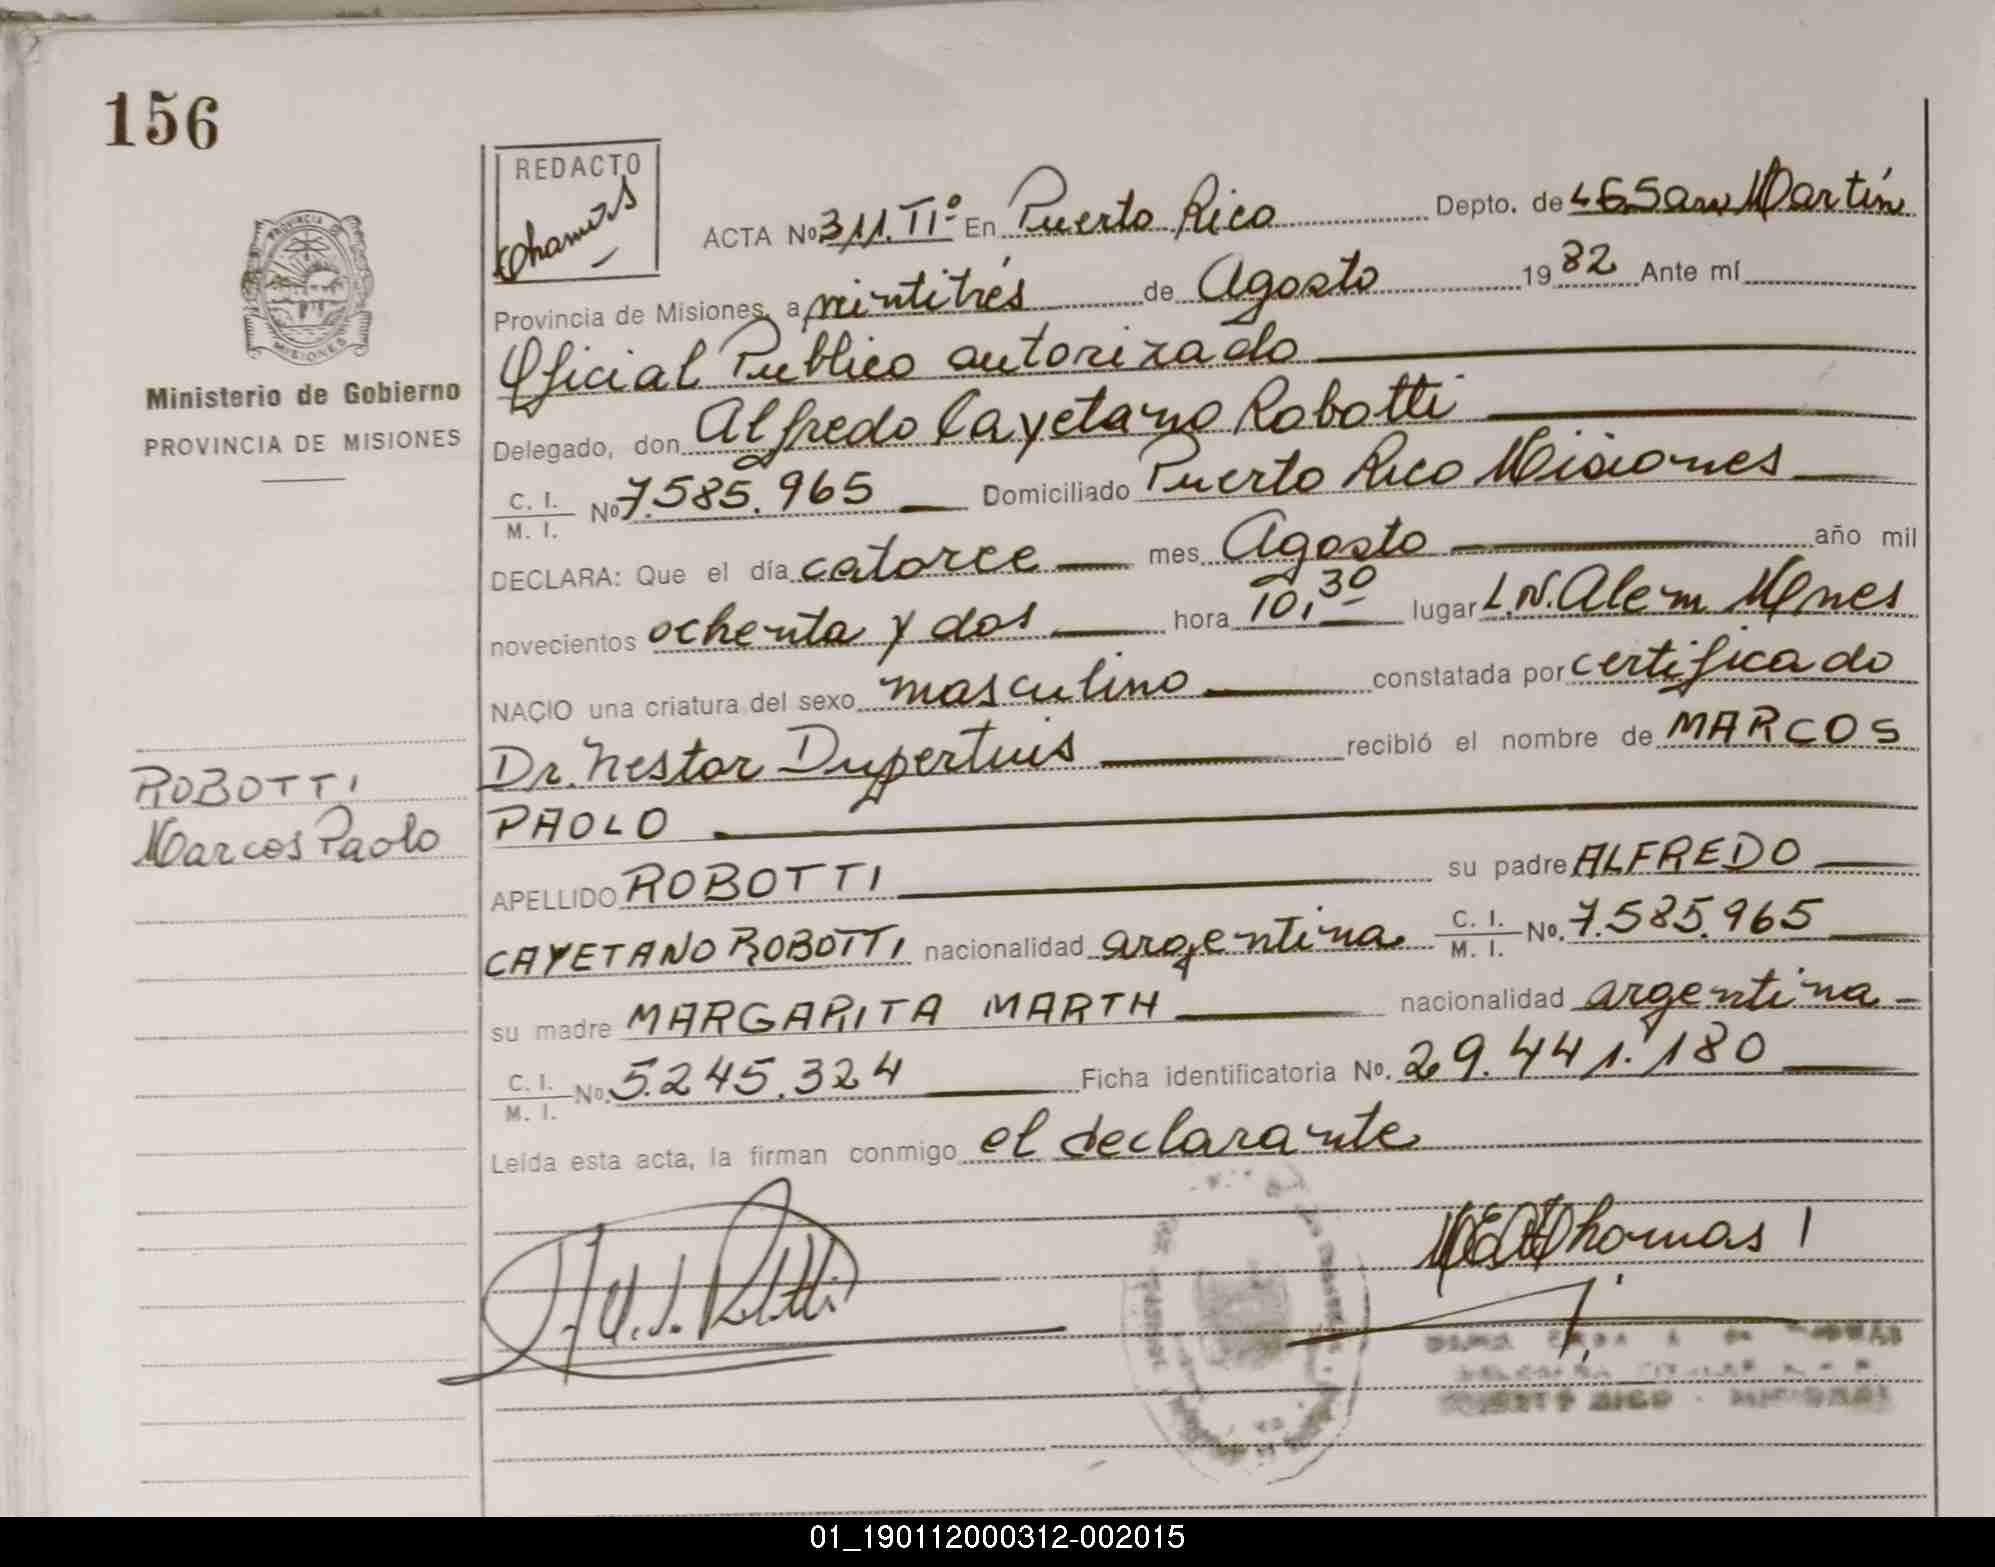 156
REDACTO
PROVINCIA
MISIONES
Ministerio de Gobierno
PROVINCIA DE MISIONES
ACTA No 311.TIº En Puerto Rico Depto. de San Martín
Provincia de Misiones, a veintitrés de Agosto 1982 Ante mí
Oficial Publico autorizado
Delegado, don Alfredo Cayetano Robotti
C. I. / M. I. No 7.585.965 Domiciliado Puerto Rico Misiones
DECLARA: Que el día catorce mes Agosto año mil
novecientos ochenta y dos hora 10,30 lugar L.N. Alem Mnes
NACIO una criatura del sexo masculino constatada por certificado
Dr. Nestor Dupertuis recibió el nombre de MARCOS
PAOLO
ROBOTTI
Marcos Paolo
APELLIDO ROBOTTI su padre ALFREDO
CAYETANO ROBOTTI nacionalidad argentina C. I. / M. I. No. 7.585.965
su madre MARGARITA MARTH nacionalidad argentina
C. I. / M. I. No. 5.245.324 Ficha identificatoria No. 29.441.180
Leída esta acta, la firman conmigo el declarante
01_190112000312-002015